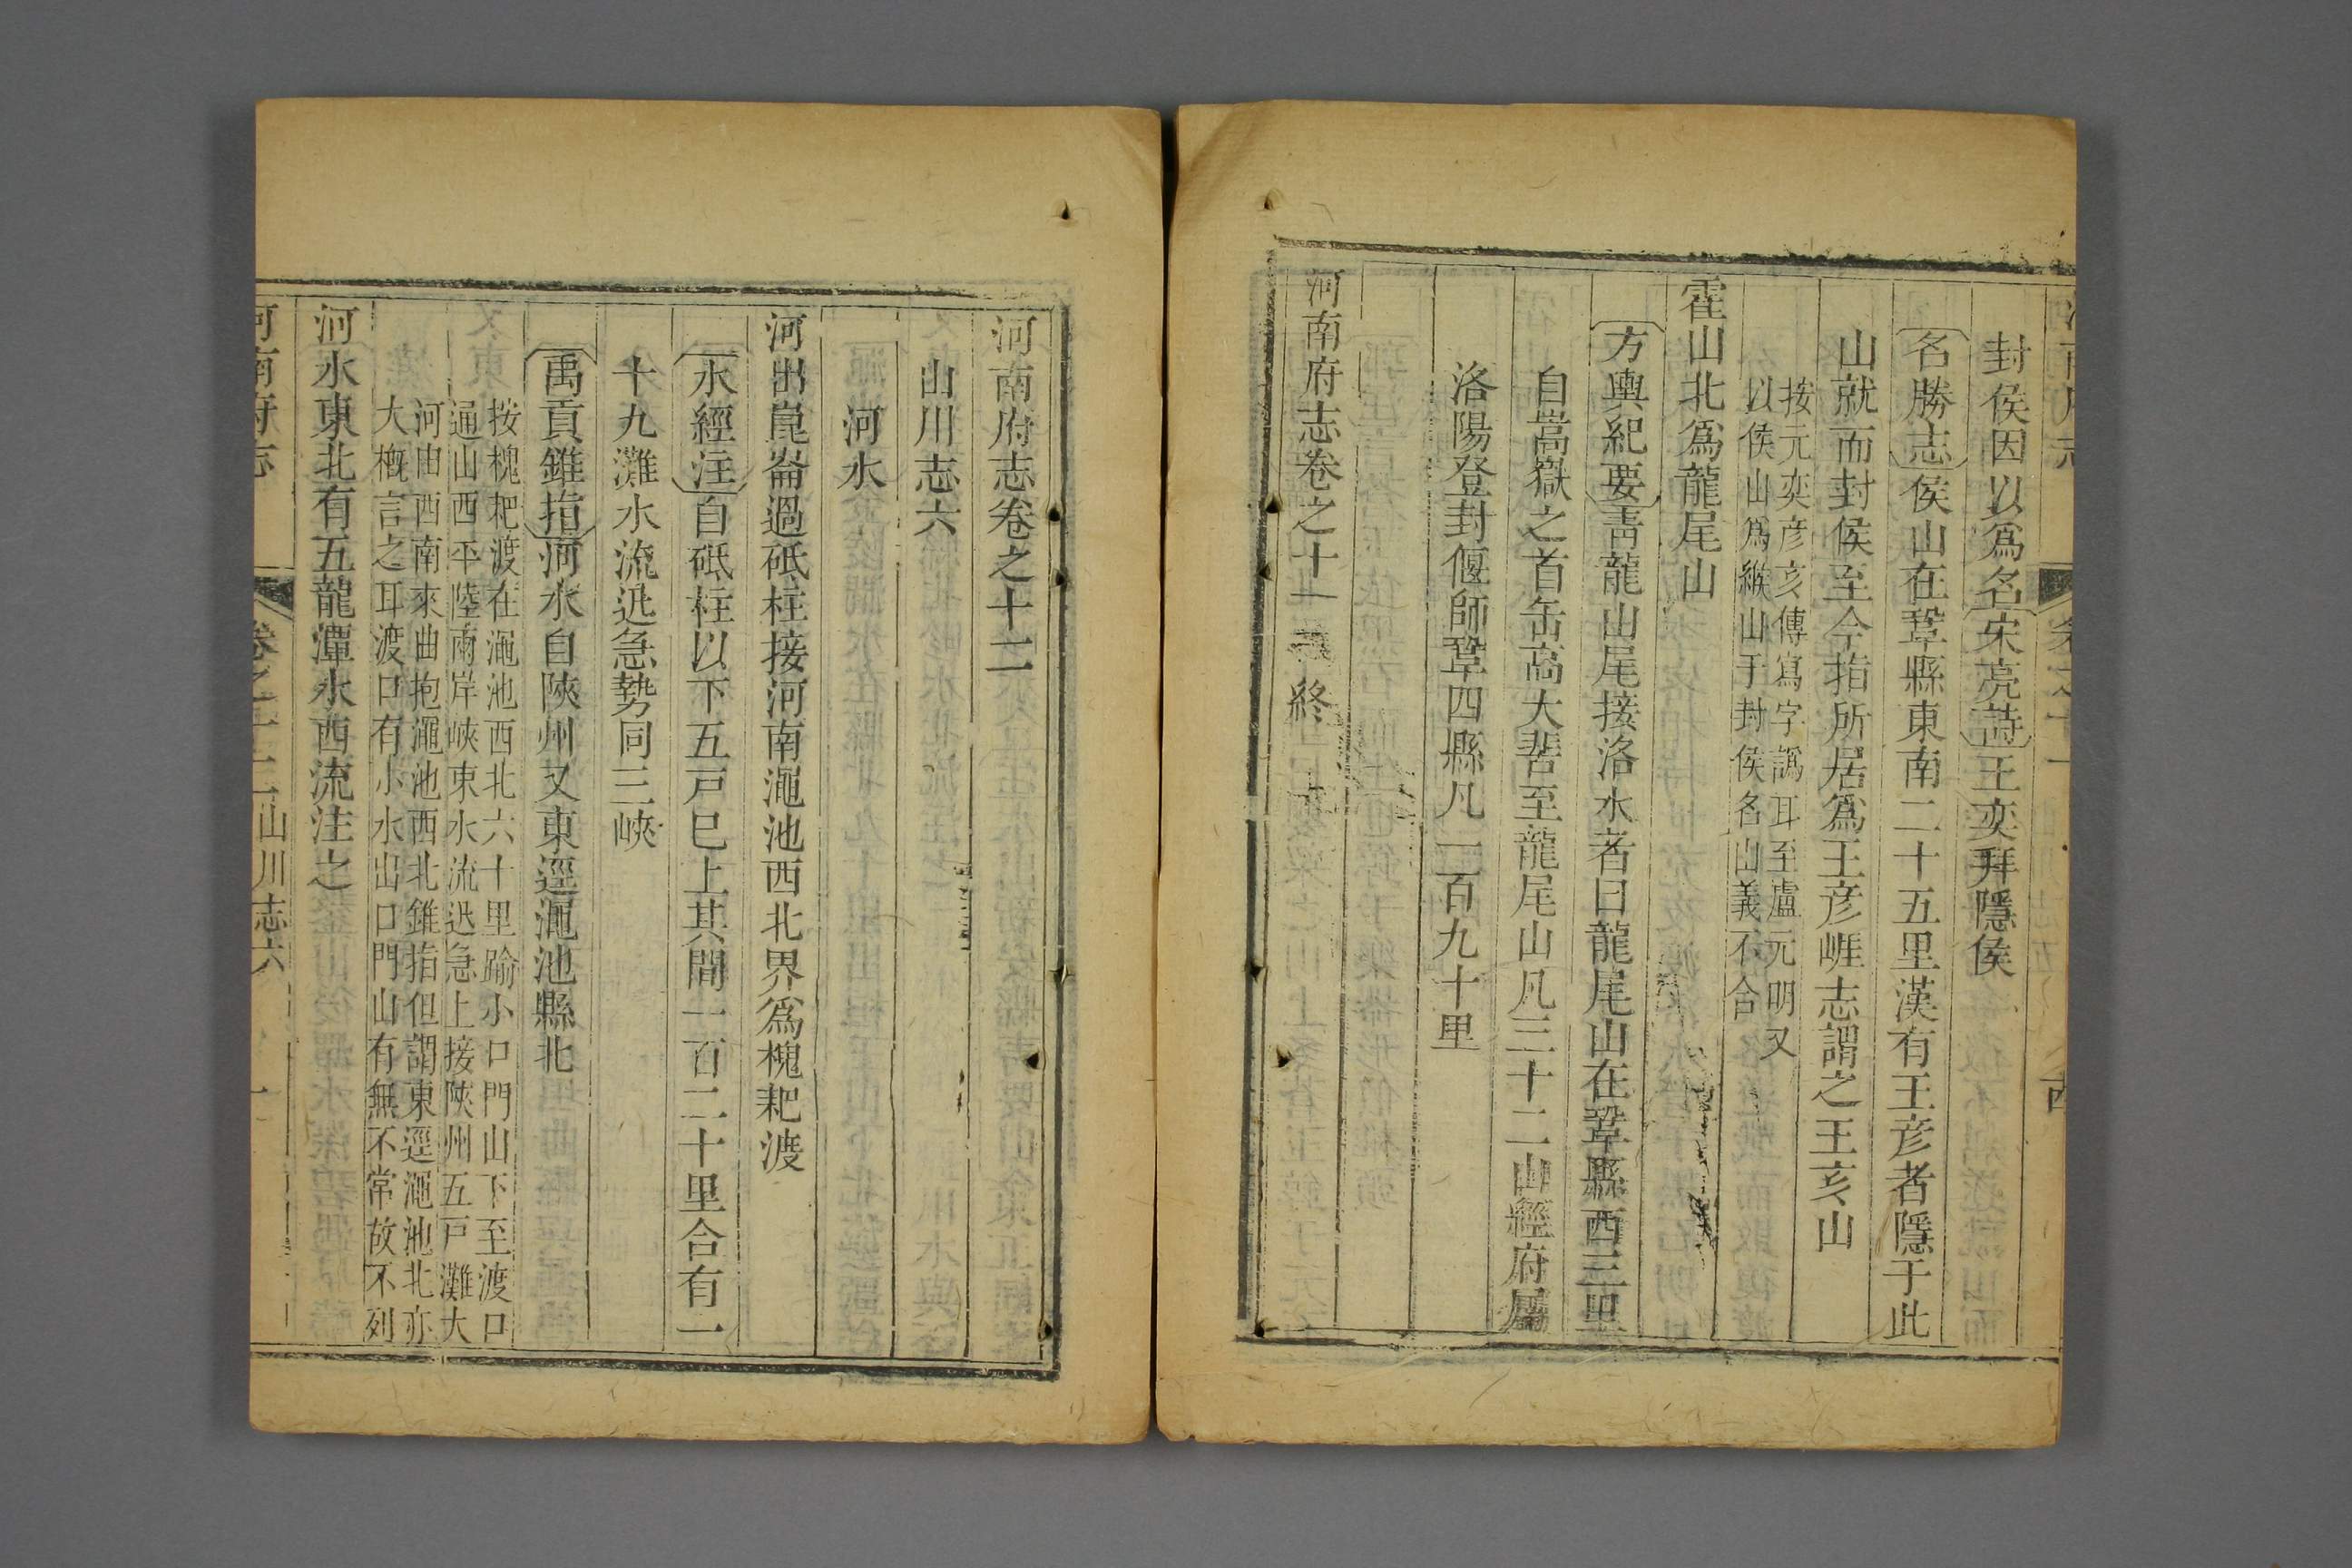 封侯因以爲名宋亮詩王奕拜隱侯
名勝志侯山在鞏縣東南二十五里漢有王彦者隱于此
山就而封侯至今指所居爲王彦崕志謂之王亥山
按元奕彦亥傳寫字譌耳至盧元明又
以侯山爲緱山于封侯名山義不合
霍山北爲龍尾山
方輿紀要青龍山尾接洛水者曰龍尾山在鞏縣西三里
自嵩嶽之首缶高大𡵆至龍尾山凡三十二山經府屬
洛陽登封偃師鞏四縣凡一百九十里
河南府志卷之十一 終
河南府志卷之十二
山川志六
河水
河出崑崙過砥柱接河南澠池西北界爲槐耙渡
水經注自砥柱以下五戸已上其間一百二十里合有一
十九灘水流迅急勢同三峽
禹貢錐指河水自陝州又東逕澠池縣北
按槐耙渡在澠池西北六十里踰小口門山下至渡口
通山西平陸兩岸峽束水流迅急上接陝州五戸灘大
河由西南來曲抱澠池西北錐指但謂東逕澠池北亦
大槪言之耳渡口有小水出口門山有無不常故不列
河水東北有五龍潭水西流注之
河南府志 卷之十二 山川志六 一